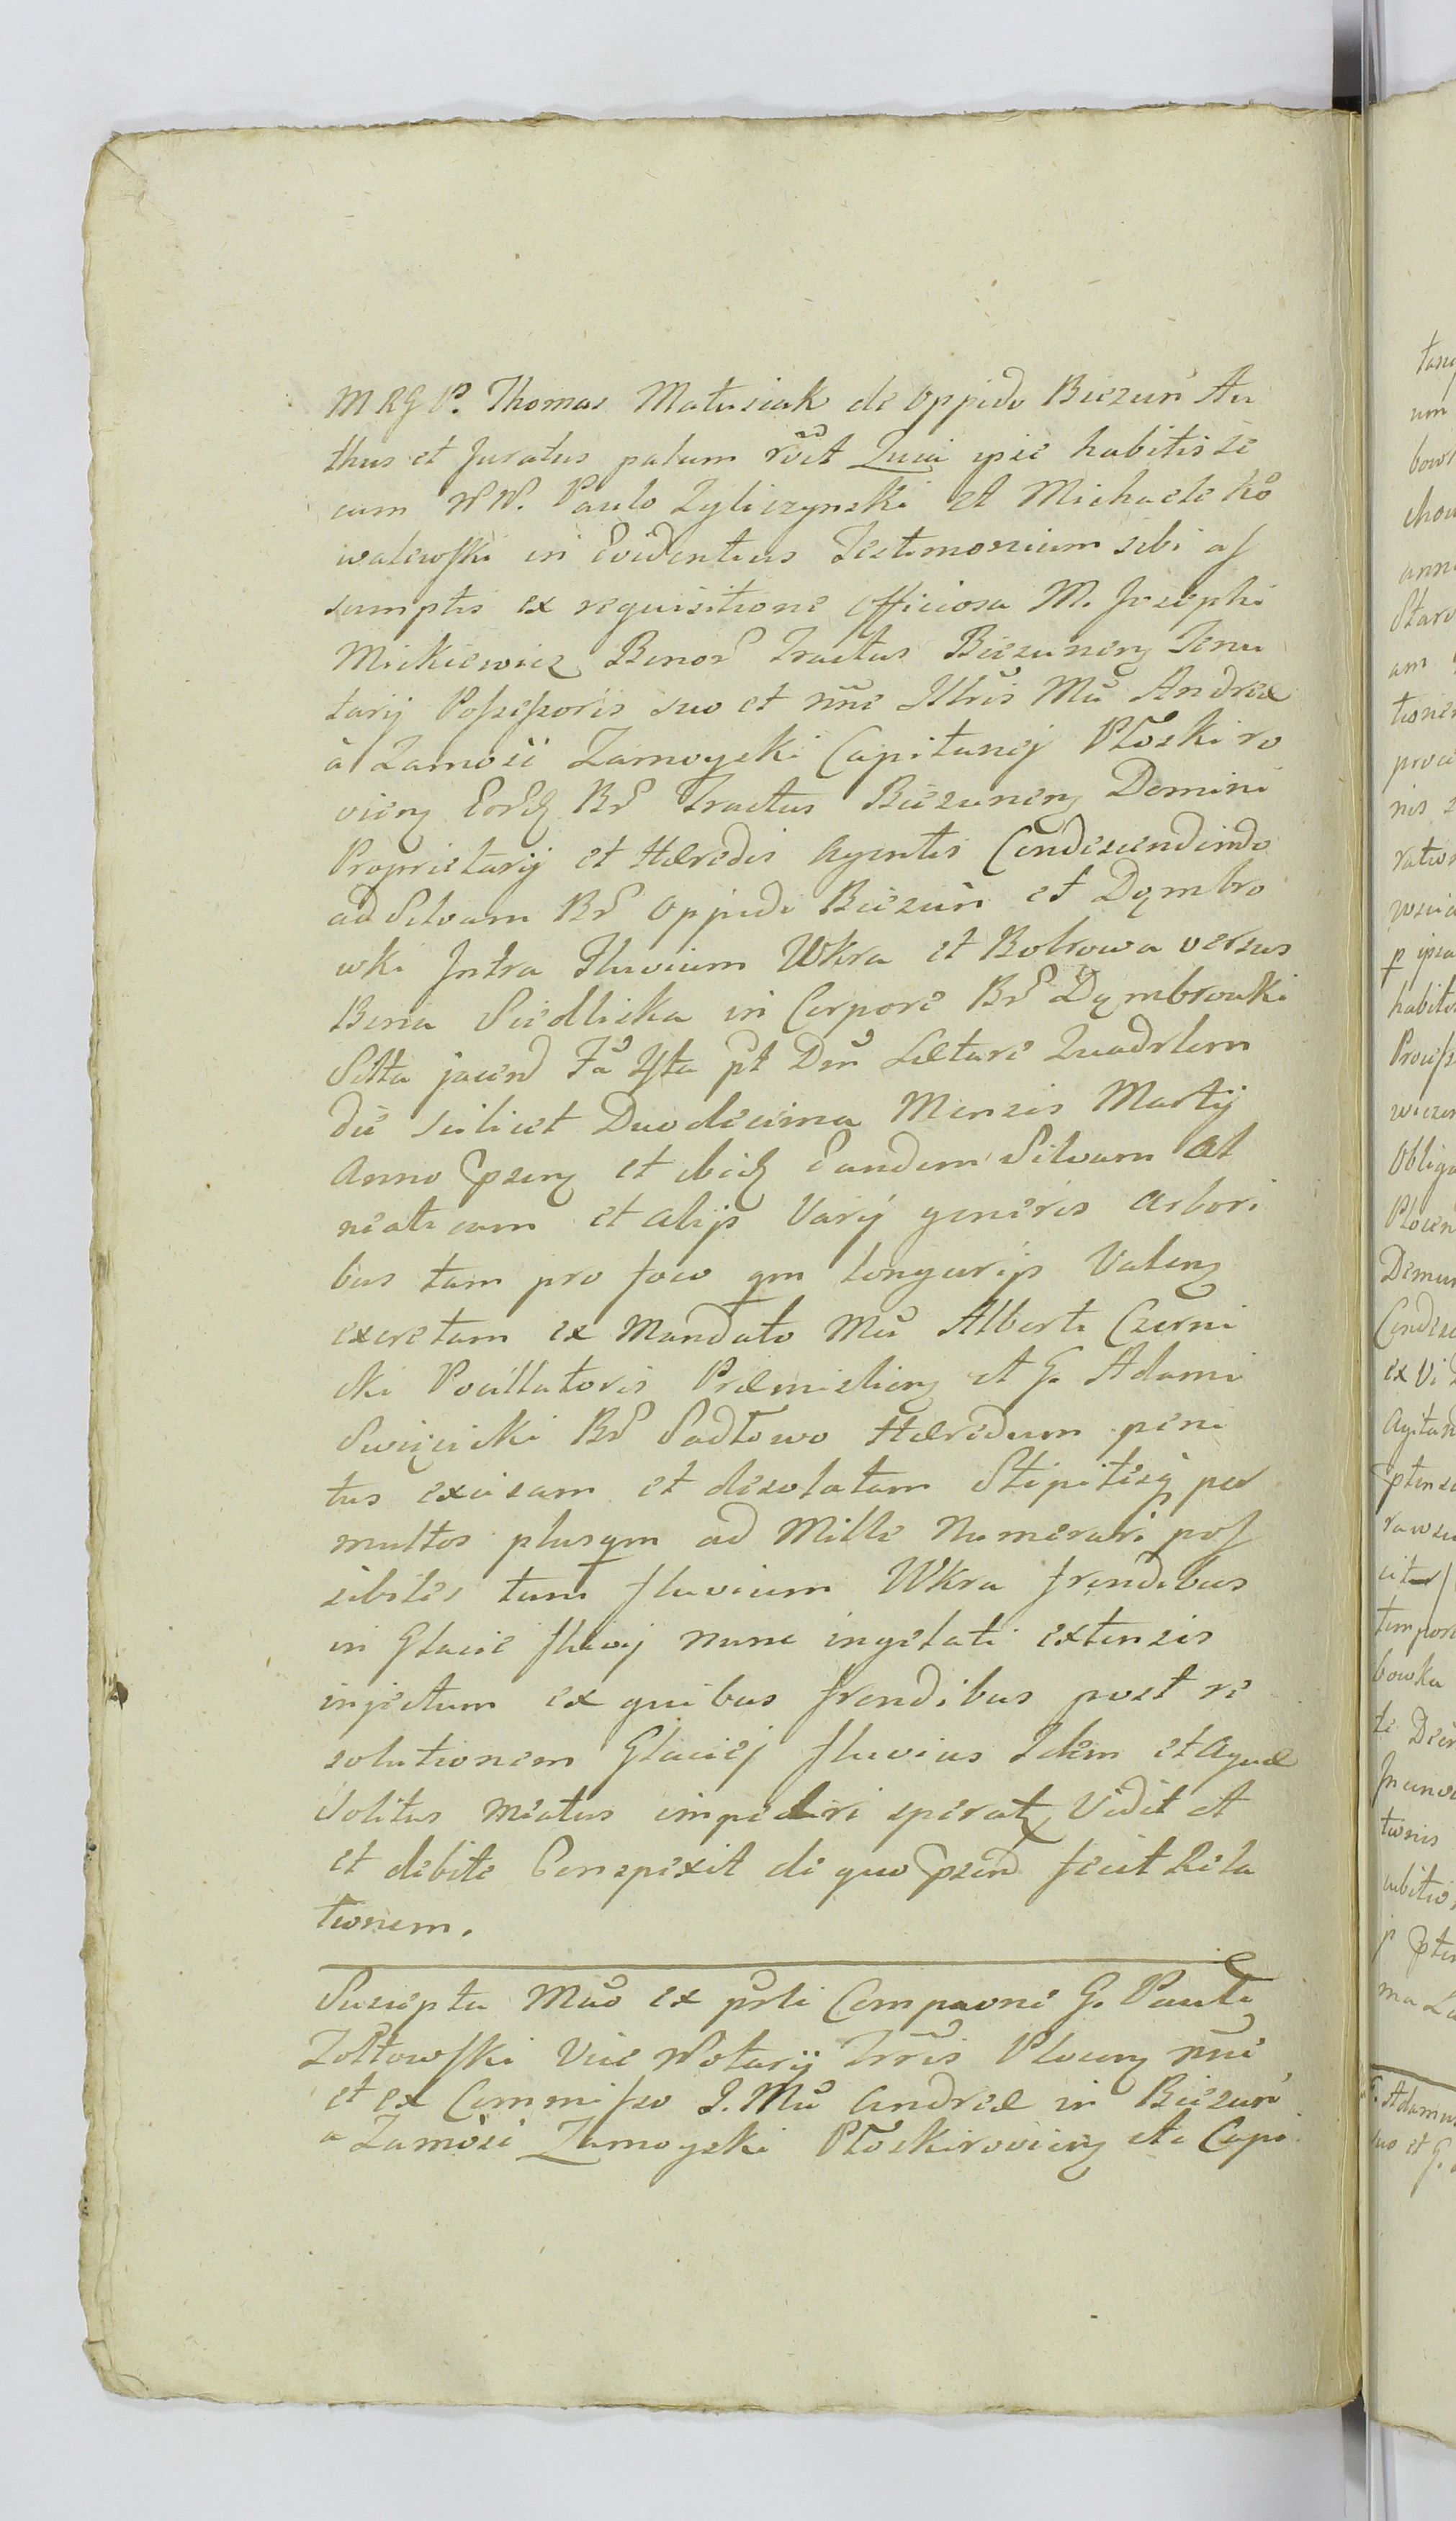 MRG P. Thomas Matusiak de Oppido Biezuń Au
thus et Juratus palam rčt Quia ipse habitis se
cum NN. Paulo Zyliczynski et Michaele Ko
walewski in Evidentius Testimonium sibi as
sumptis ex requisitione Officiosa M. Josephi
Mickiewicz Bonor Tractus Biezunen Tenu
tarij Possessoris suo et nne Illris Mci Andreæ
à Zamość Zamoyski Capitanej Płoskiro
vien Eord Br Tractus Biezunen Domini
Proprietarij et Hæredis Agentis Condescendendo
ad Silvam Br Oppidi Biezuń et Dąmbro
wki Intra Fluvium Wkra et Bobrowa versus
Bona Siedliska in Corpore Br Dąmbrowki
Sitta jacend Fa 4ta pt Dm Lætare Quadrlem
die scilicet Duodecima Mensis Martij
Anno Psen et ibid Eandem Silvam Al
neati cum et alijs Varij generis arbori
bus tam pro foco qm longurijs Valen
excretam ex Mandato Mci Alberti Czerni
cki Pocillatoris Præmislien et G. Adami
Swięcicki Br Sadłowo Hæredum peni
tus excisam et desolatam Stipitesq per
multos plusqm ad Mille Numerari pos
sibiles tum fluvium Wkra frondibus
in Glacie fluvij nunc ingelati extensis
injectum ex quibus frondibus post re
solutionem Glaciej fluvius Idem et Aquæ
Solitus meatus impediri speratr Vidit et
et debite Conspexit de quo psend fecit Rela
tionem.
Suscepta Mco ex psli Compaone G. Pauli
Zołtowski Vice Notarij Trris Plocen nne
et ex Commisso I. Mci Andreæ in Biezuń
a Zamość Zamoyski Płoskirovien etc Capi